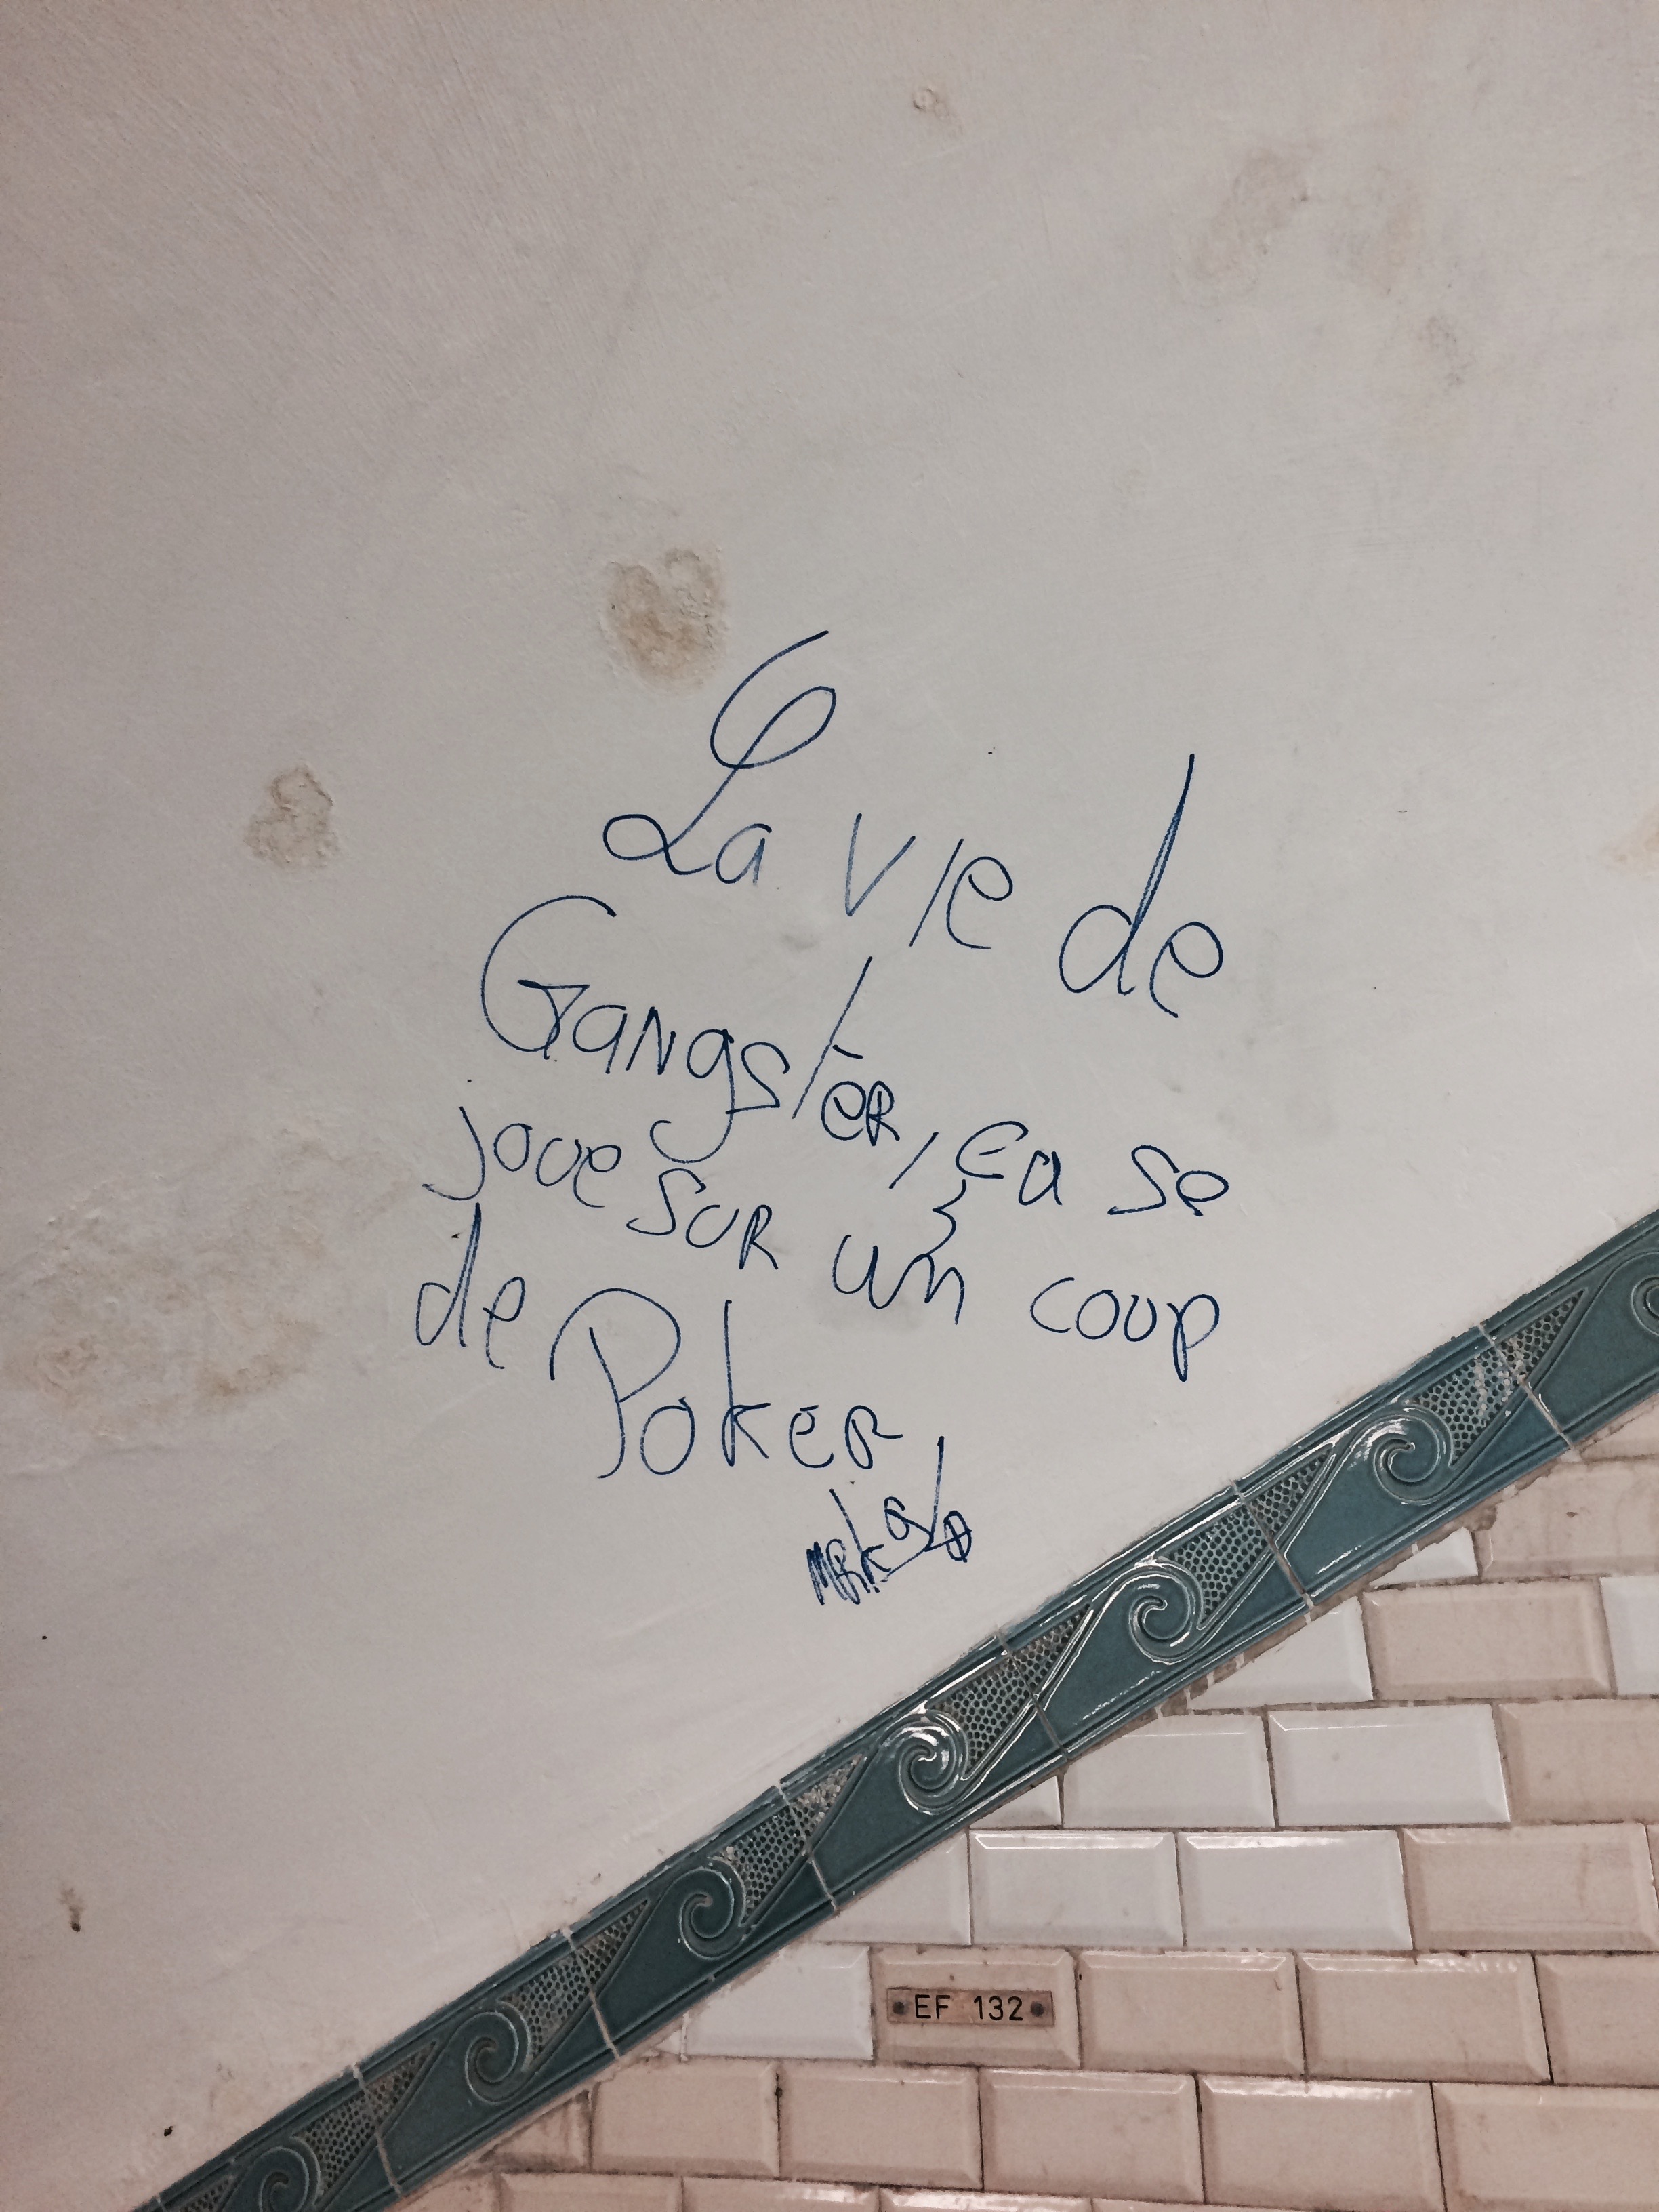 La vie de
Gangstèr, ça se
joue sur un coup
de Poker
EF 132